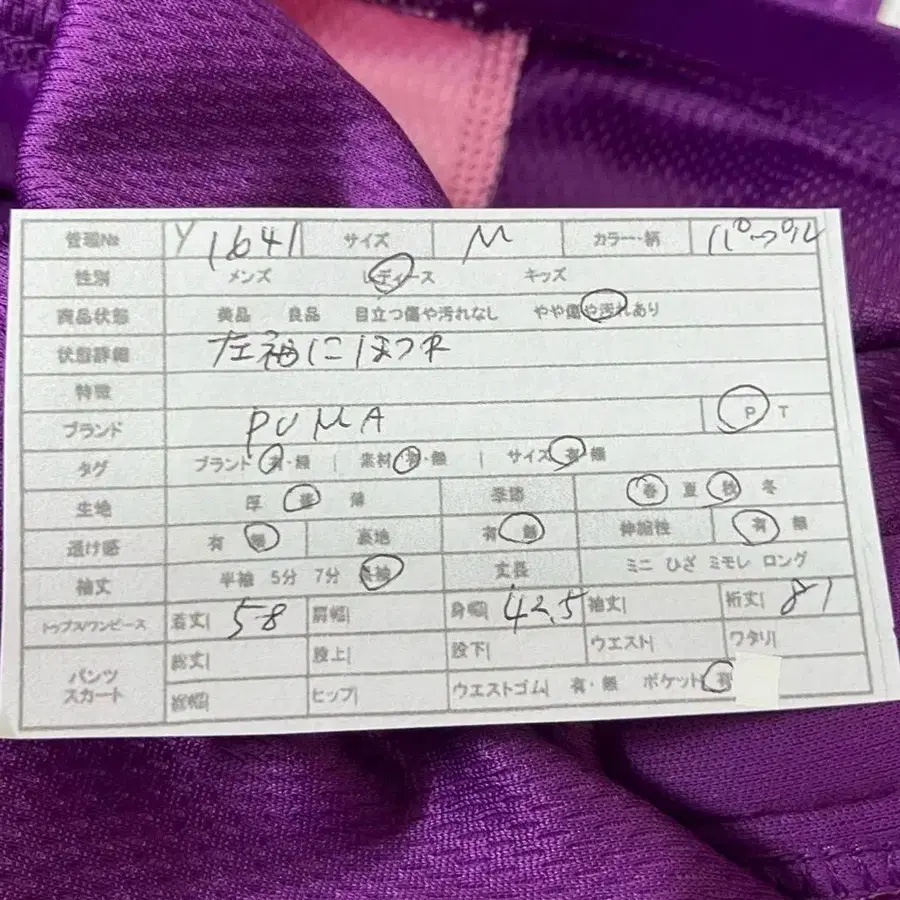 管理№ Y 1641 サイズ M カラー・柄 パープル
性別 メンズ レディース キッズ
商品状態 美品 良品 目立つ傷や汚れなし やや傷や汚れあり
状態詳細 左袖にほつれ
特徴
ブランド PUMA P T
タグ ブランド 有・無 | 素材 有・無 | サイズ 有・無
生地 厚 普 薄 季節 春 夏 秋 冬
透け感 有 無 裏地 有 無 伸縮性 有 無
袖丈 半袖 5分 7分 長袖 丈長 ミニ ひざ ミモレ ロング
トップス/ワンピース 着丈| 58 肩幅| 身幅| 42.5 袖丈| 裄丈| 81
パンツ スカート 総丈| 股上| 股下| ウエスト| ワタリ|
裾幅| ヒップ| ウエストゴム| 有・無 ポケット| 有